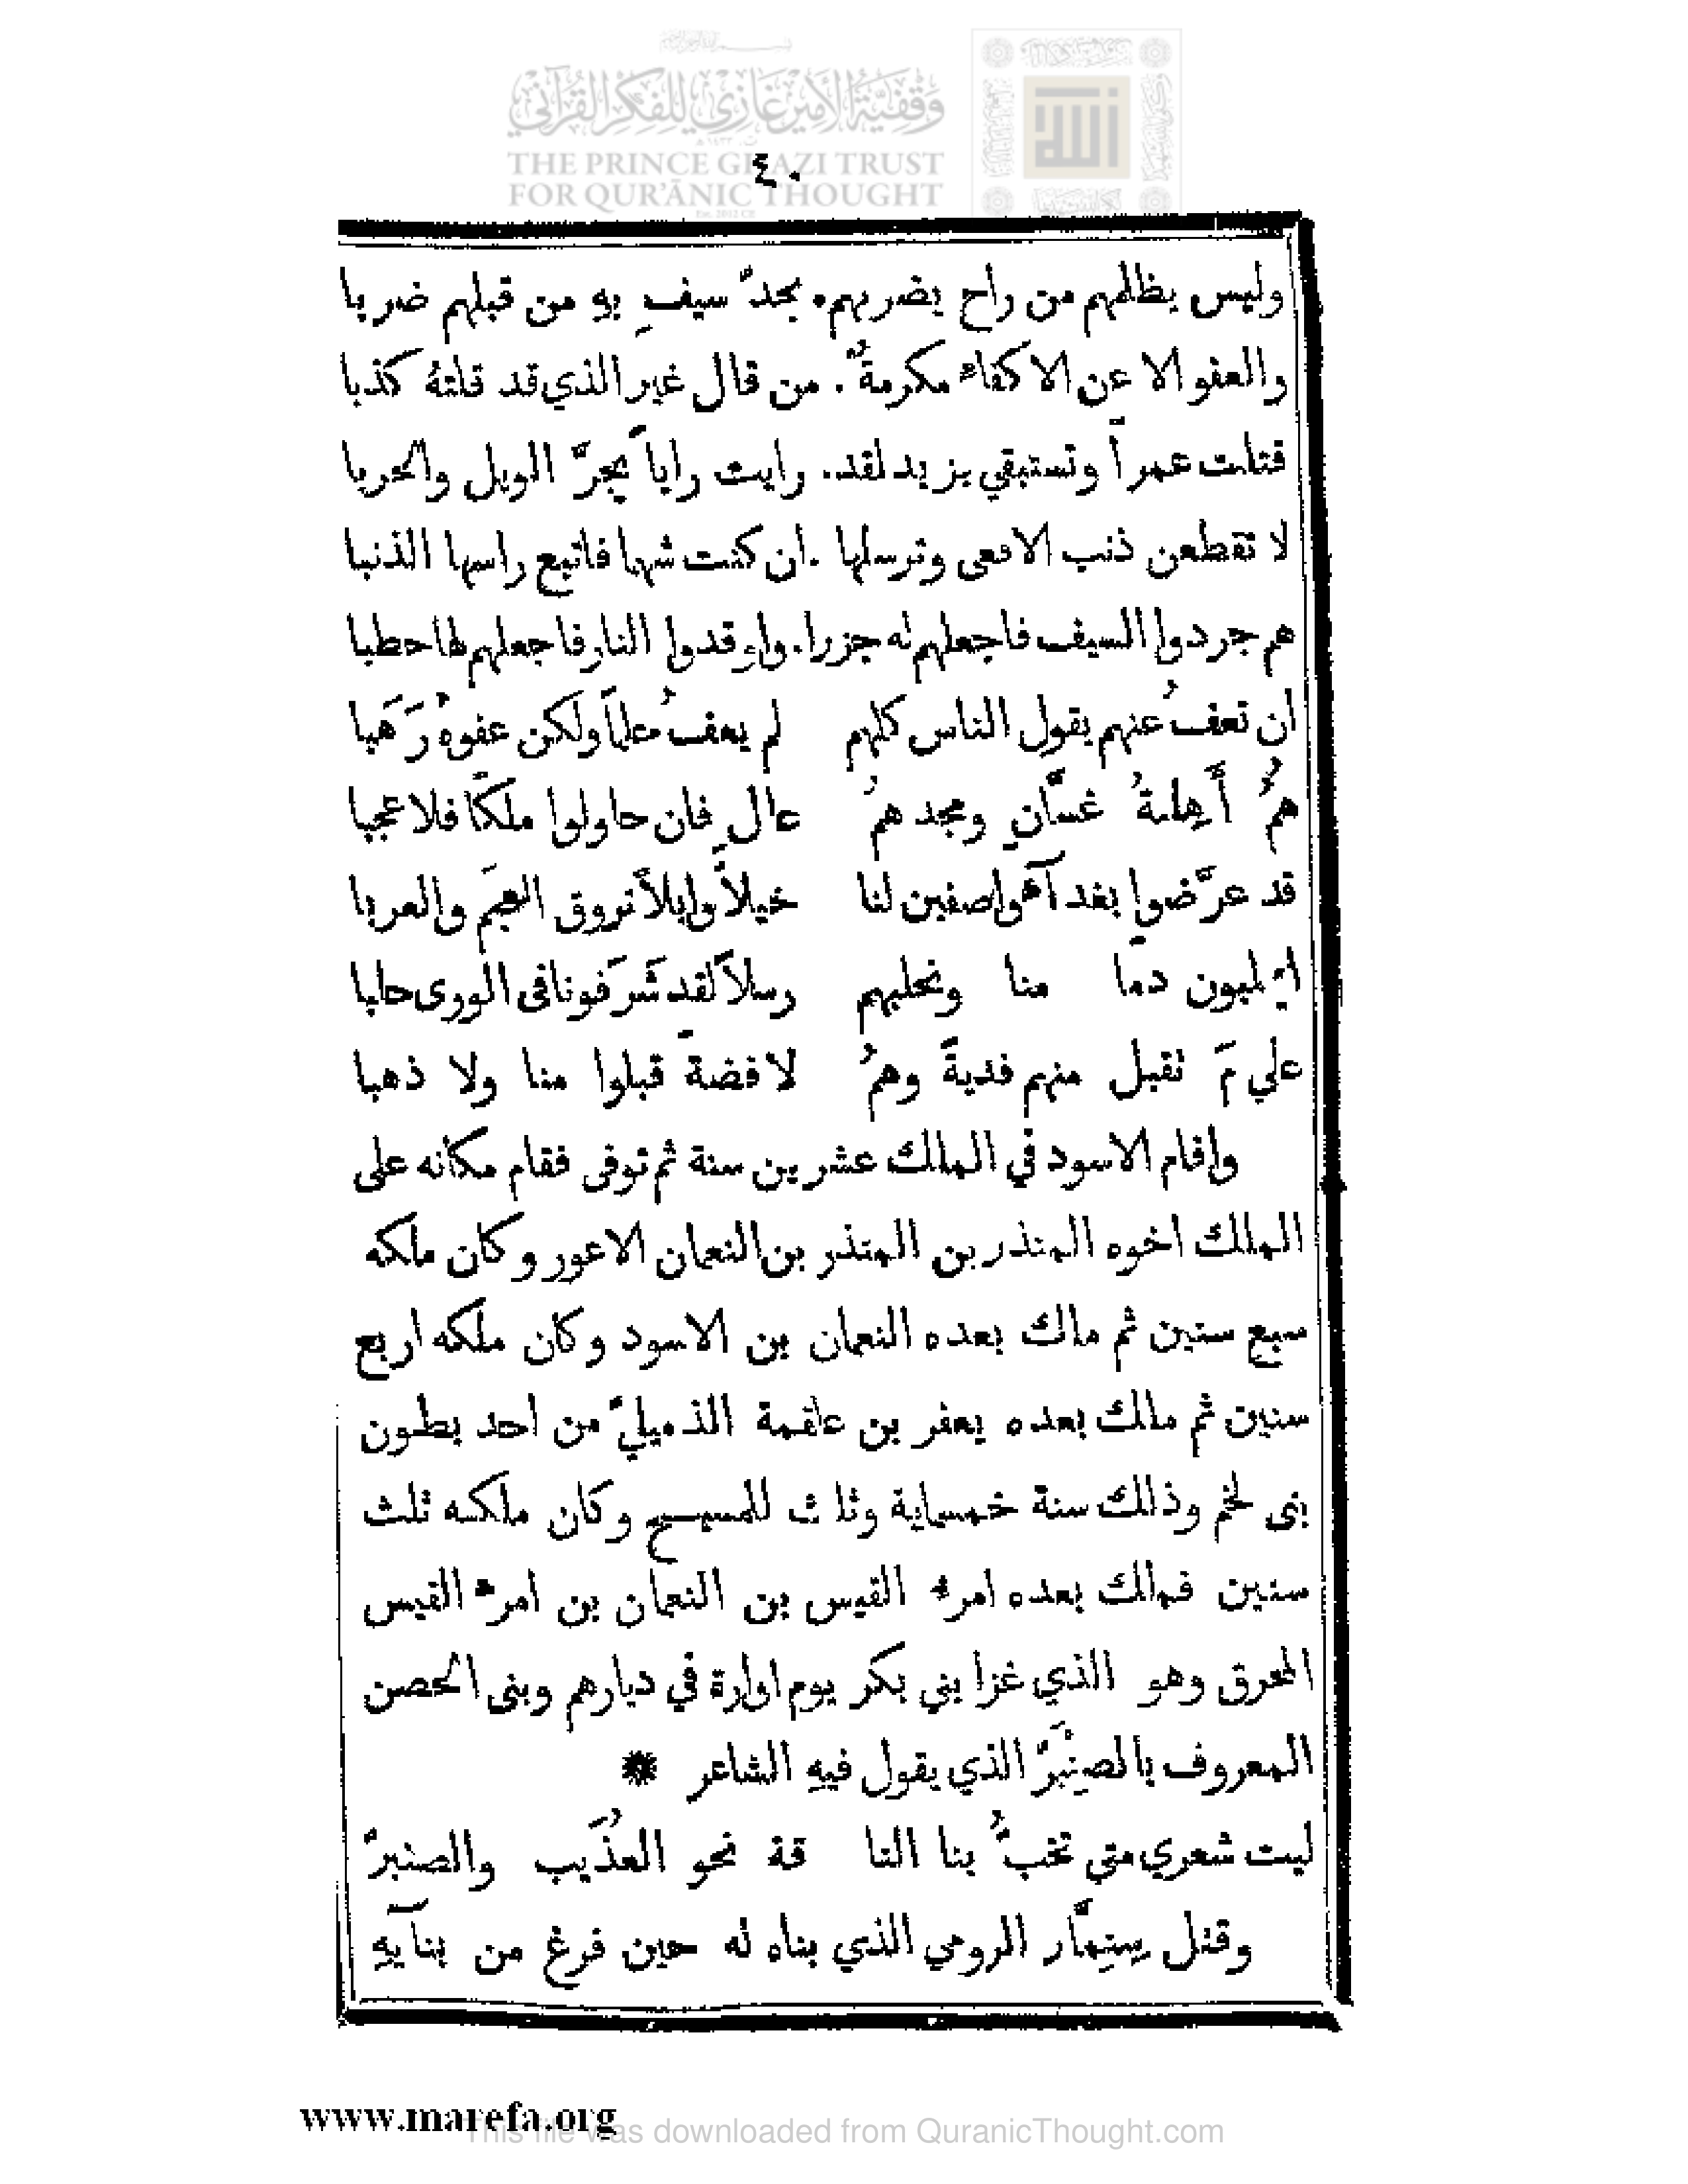 وقفية الأمير غازي للفكر القرآني
THE PRINCE GHAZI TRUST
FOR QUR'ĀNIC THOUGHT
٤٠
وليس يظلمهم من راح يضربهم. بحدّ سيفٍ بهِ من قبلهم ضربا
والعفو الا عن الاكفاء مكرمةٌ. من قال غير الذي قد قلتهُ كذبا
قتلت عمراً وتستبقي يزيد لقد. رايت راياً يجرّ الويل والحربا
لا تقطعن ذنب الافعى وترسلها .ان كنت شهما فاتبع راسها الذنبا
هم جردوا السيف فاجعلهم له جزرا.واوقدوا النار فاجعلهم لها حطبا
ان تعفُ عنهم يقول الناس كلهم لم يعفُ حلماً ولكن عفوهُ رَهَبا
همُ أَهِلةُ غسَّانٍ ومجدهمُ عالٍ فان حاولوا ملكًا فلا عجبا
قد عرَّضوا بفدآءٍ واصفين لنا خيلاً وابلاً تروق العجمَ والعربا
ايحلبون دمًا منا ونحلبهم رسلاً لقد شَرَفونا فى الورى حلبا
علي مَ نقبل منهم فديةً وهمُ لا فضةً قبلوا منا ولا ذهبا
واقام الاسود في الملك عشرين سنة ثم توفى فقام مكانه على
الملك اخوه المنذر بن المنذر بن النعمان الاعور وكان ملكه
سبع سنين ثم ملك بعده النعمان بن الاسود وكان ملكه اربع
سنين ثم ملك بعده يعفر بن علقمة الذميليّ من احد بطون
بنى لخم وذلك سنة خمسماية وثلث للمسيح وكان ملكه ثلث
سنين فملك بعده امرء القيس بن النعمان بن امرء القيس
المحرق وهو الذي غزا بني بكر يوم اوارة في ديارهم وبنى الحصن
المعروف بالصِنَّبْرَ الذي يقول فيهِ الشاعر *
ليت شعري متى تخبُّ بنا النا قة نحو العُذَيب والصنبرّ
وقتل سِنِمَّار الرومي الذي بناه له حين فرغ من بنآيهِ
www.marefa.org
This file was downloaded from QuranicThought.com